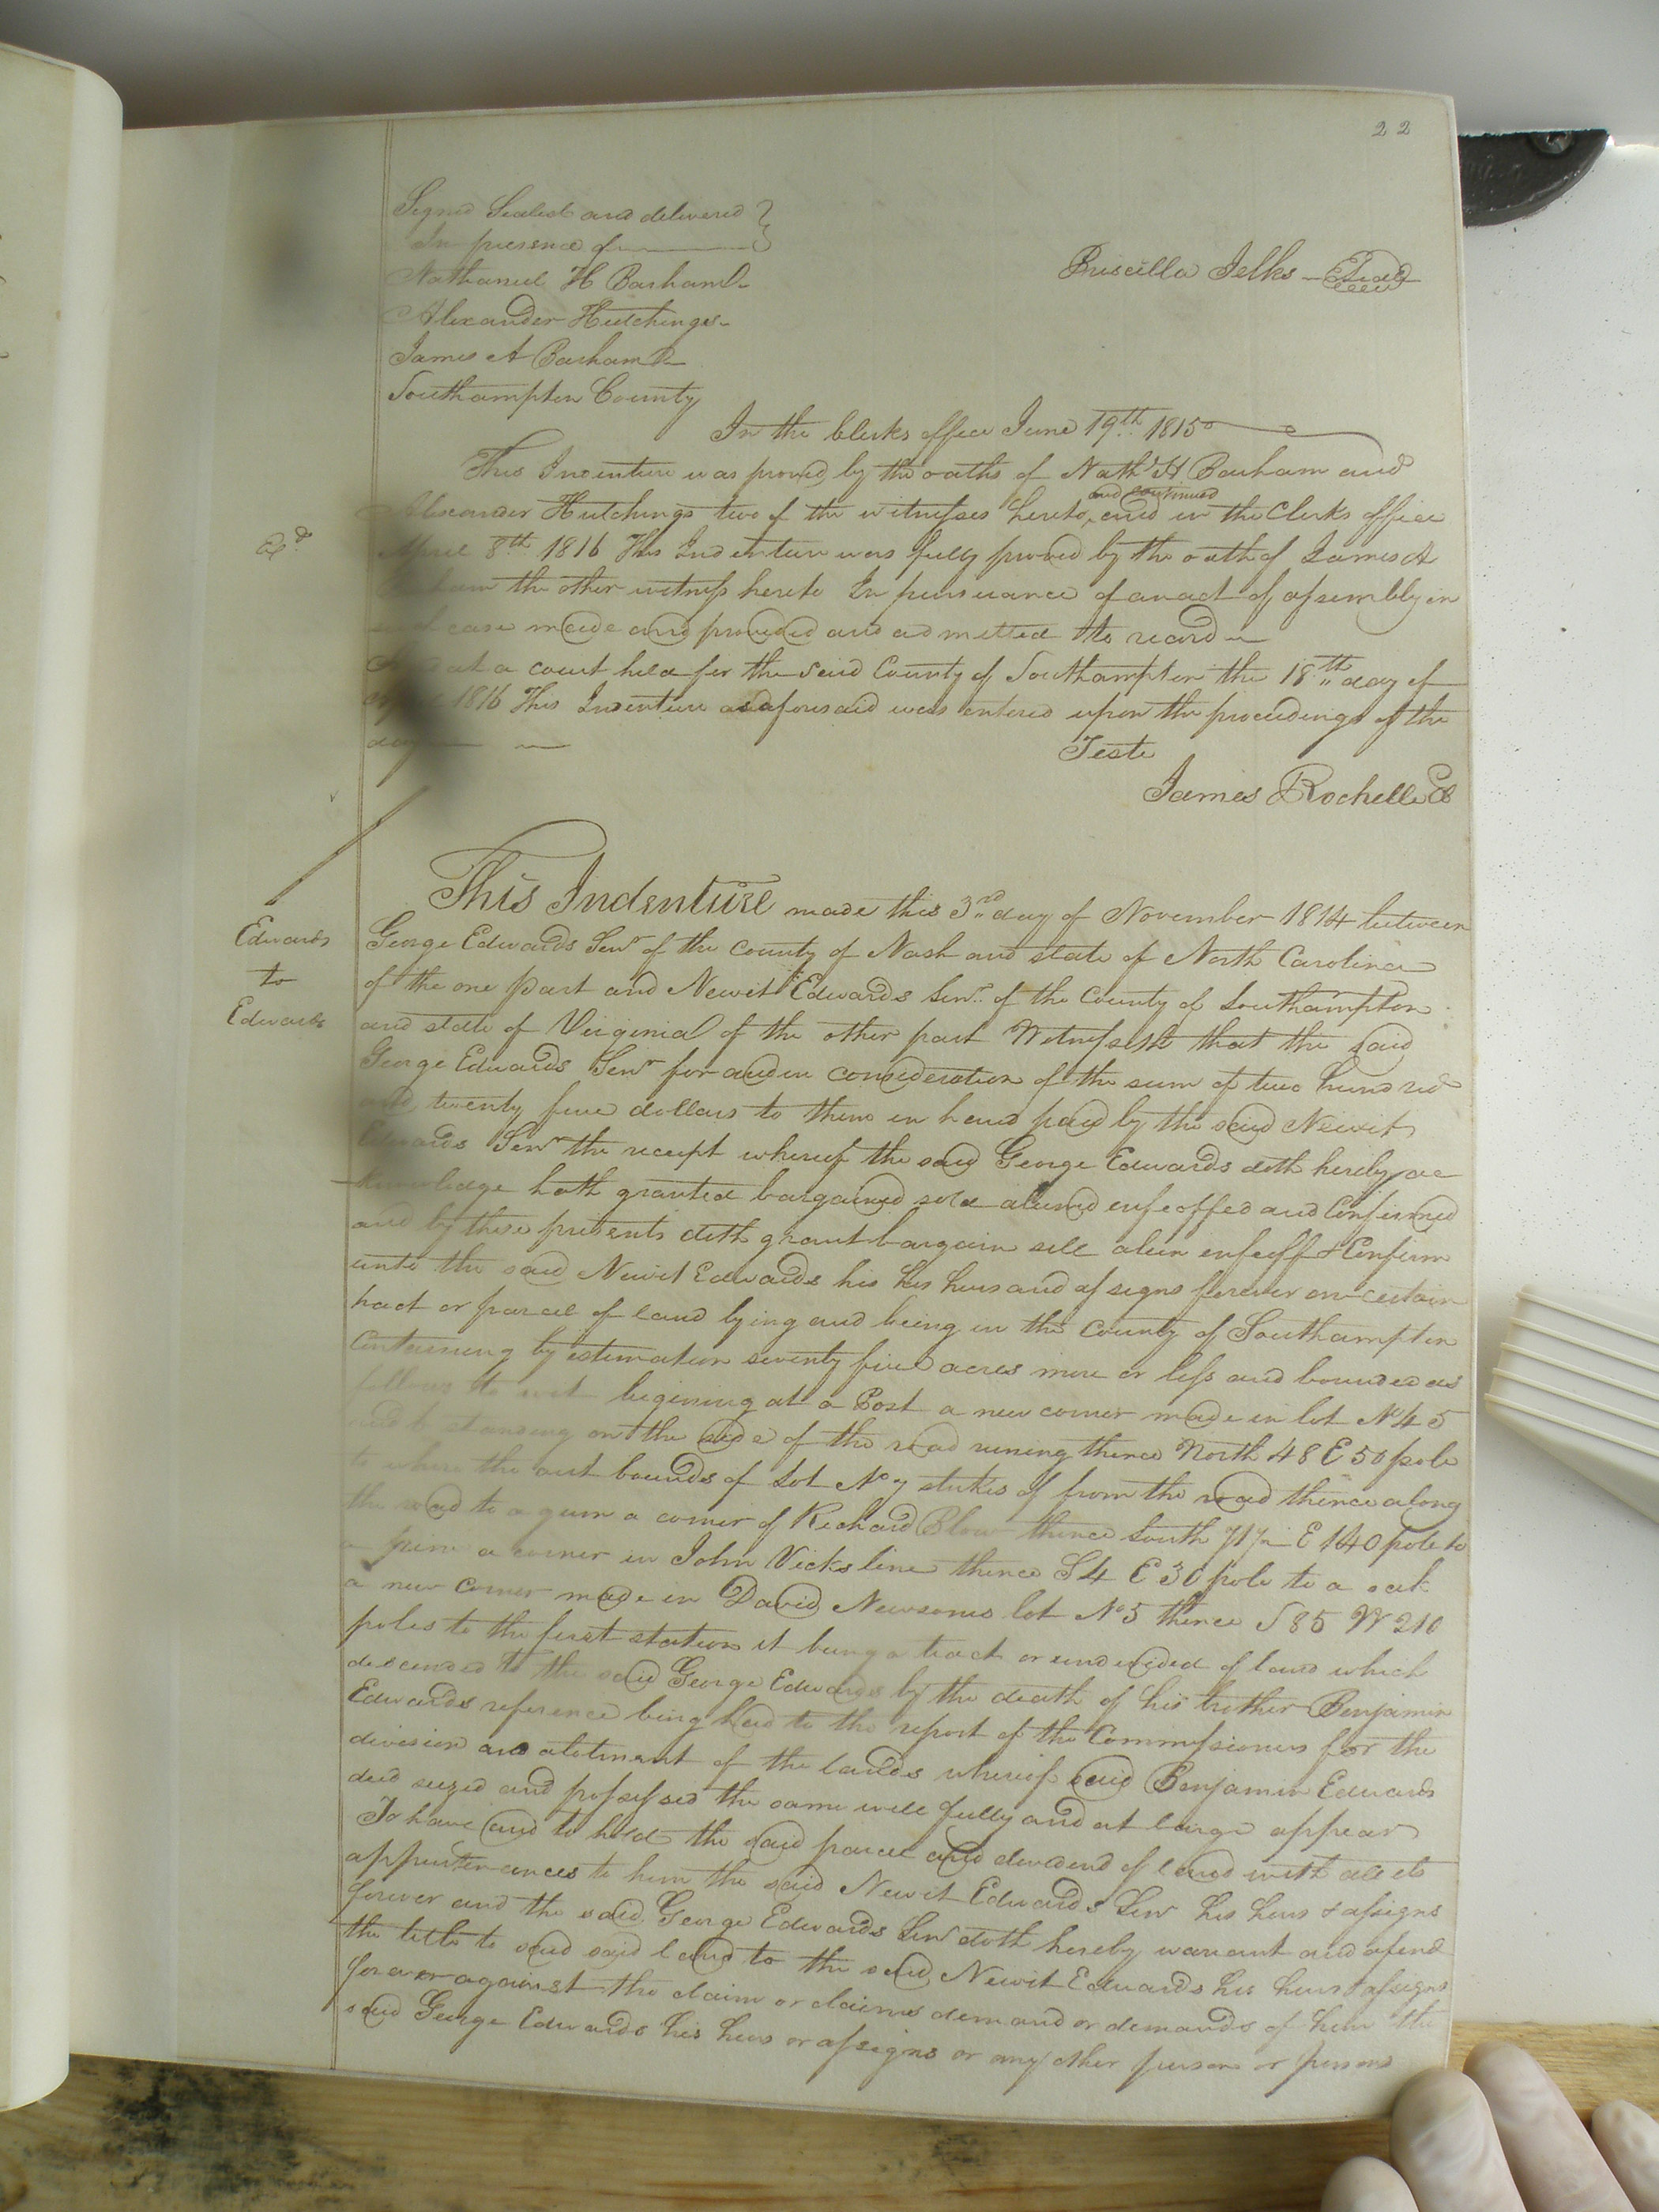 22
Signed Sealed and delivered }
In presence of
Priscilla Jelks Seal
Nathaniel H Barham
Alexander Hutchings
James A Barham
Southampton County
In the Clerks office June 19th 1815
This Indenture was proved by the oaths of Nathl H Barham and
and continued
Alexander Hutchings two of the witnesses hereto, and in the Clerks office
April 8th 1816 This Indenture was fully proved by the oath of James A
Barham the other witness hereto In pursuance of an act of assembly in
such case made and provided and admitted to record
And at a court held for the said County of Southampton the 18th day of
1816 This Indenture as aforesaid was entered upon the proceedings of the
day
Teste
James Rochelle
Edwards
to
Edwards
This Indenture made this 3rd day of November 1814 between
George Edwards Senr of the County of Nash and state of North Carolina
of the one part and Newit Edwards Senr of the County of Southampton
and state of Virginia of the other part Witnesseth that the said
George Edwards Senr for and in consideration of the sum of two hundred
and twenty five dollars to them in hand paid by the said Newit
Edwards Senr the receipt whereof the said George Edwards doth hereby ac
knowledge hath granted bargained sold aliened enfeoffed and Confirmed
and by these presents doth grant bargain sell alien enfeoff & Confirm
unto the said Newit Edwards his his heirs and assigns forever one certain
tract or parcel of land lying and being in the County of Southampton
Containing by estimation seventy five acres more or less and bounded as
follows to wit begining at a Post a new corner made in lot No 4 5
standing on the side of the road runing thence North 48 E 50 pole
to where the out bounds of Lot No 7 strikes of from the road thence along
the road to a gum a corner of Richard Blow thence South 71 E 140 pole to
a pine a corner in John Vicks line thence S 4 E 30 pole to a oak
a new corner made in David Newsoms lot No 5 thence S 85 W 210
poles to the first station it being a tract or undevided of land which
descended to the said George Edwards by the death of his brother Benjamin
Edwards reference being had to the report of the Commissioners for the
division and alotment of the lands whereof said Benjamin Edwards
died seized and possessed the same will fully and at large appear
To have and to hold the said parcel and devidend of land with all its
appurtenances to him the said Newit Edwards Senr his heirs & assigns
forever and the said George Edwards Senr doth hereby warrant and defend
the title to said said land to the said Newit Edwards his heirs & assigns
forever against the claim or claims demand or demands of him the
said George Edwards his heirs or assigns or any other person or persons